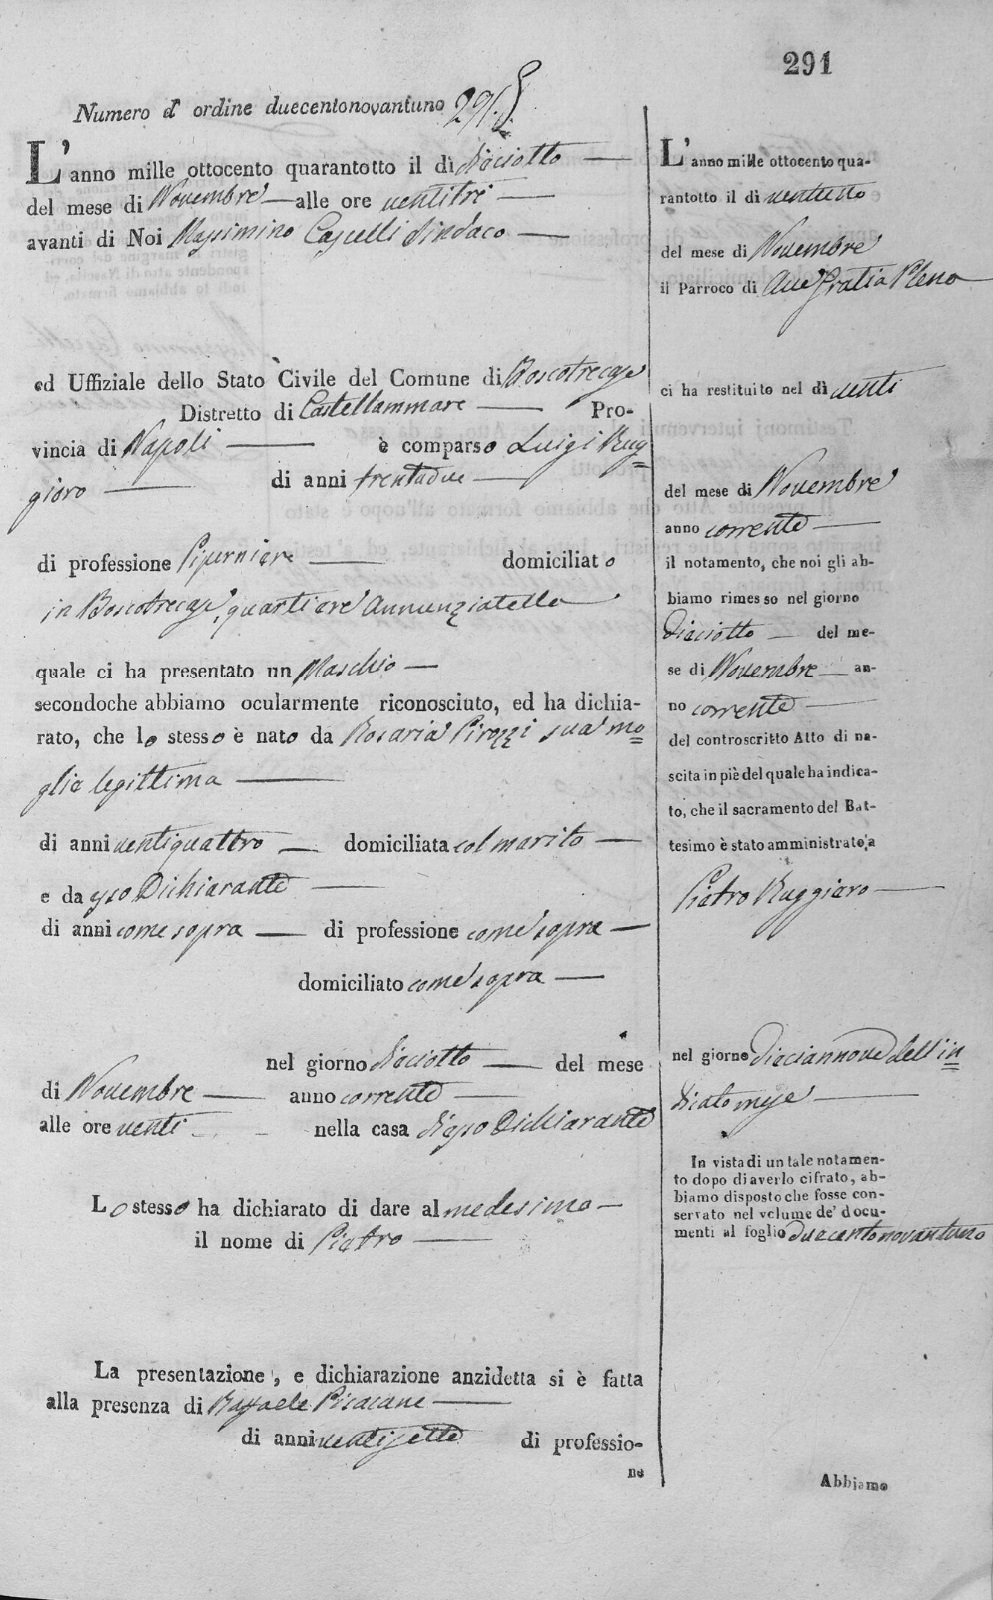 291
Numero d' ordine duecentonovantuno 291.
L' anno mille ottocento quarantotto il dì diciotto —
del mese di Novembre — alle ore ventitrè —
avanti di Noi Massimino Casselli Sindaco —
ed Uffiziale dello Stato Civile del Comune di Boscotrecase
Distretto di Castellammare — Pro-
vincia di Napoli — è comparso Luigi Rug=
giero — di anni trentadue —
di professione Piperniere — domiciliato
in Boscotrecase, quartiere Annunziatella
quale ci ha presentato un Maschio —
secondoche abbiamo ocularmente riconosciuto, ed ha dichia-
rato, che lo stesso è nato da Rosaria Pirozzi sua mo=
glie legittima —
di anni ventiquattro — domiciliata col marito —
e da esso Dichiarante —
di anni come sopra — di professione come sopra —
domiciliato come sopra —
nel giorno diciotto — del mese
di Novembre — anno corrente —
alle ore venti — nella casa di esso Dichiarante
Lo stesso ha dichiarato di dare al medesimo —
il nome di Pietro —
La presentazione, e dichiarazione anzidetta si è fatta
alla presenza di Raffaele Pisacane —
di anni ventisette di professio-
ne
L' anno mille ottocento qua-
rantotto il dì ventotto
del mese di Novembre
il Parroco di Ave Gratia Plena
ci ha restituito nel dì venti
del mese di Novembre
anno corrente —
il notamento, che noi gli ab-
biamo rimesso nel giorno
Diciotto — del me-
se di Novembre — an-
no corrente —
del controscritto Atto di na-
scita in piè del quale ha indica-
to, che il sacramento del Bat-
tesimo è stato amministrato a
Pietro Ruggiero —
nel giorno diciannove dell'in=
dicato mese —
In vista di un tale notamen-
to dopo di averlo cifrato, ab-
biamo disposto che fosse con-
servato nel volume de' docu-
menti al foglio duecentonovantuno
Abbiamo